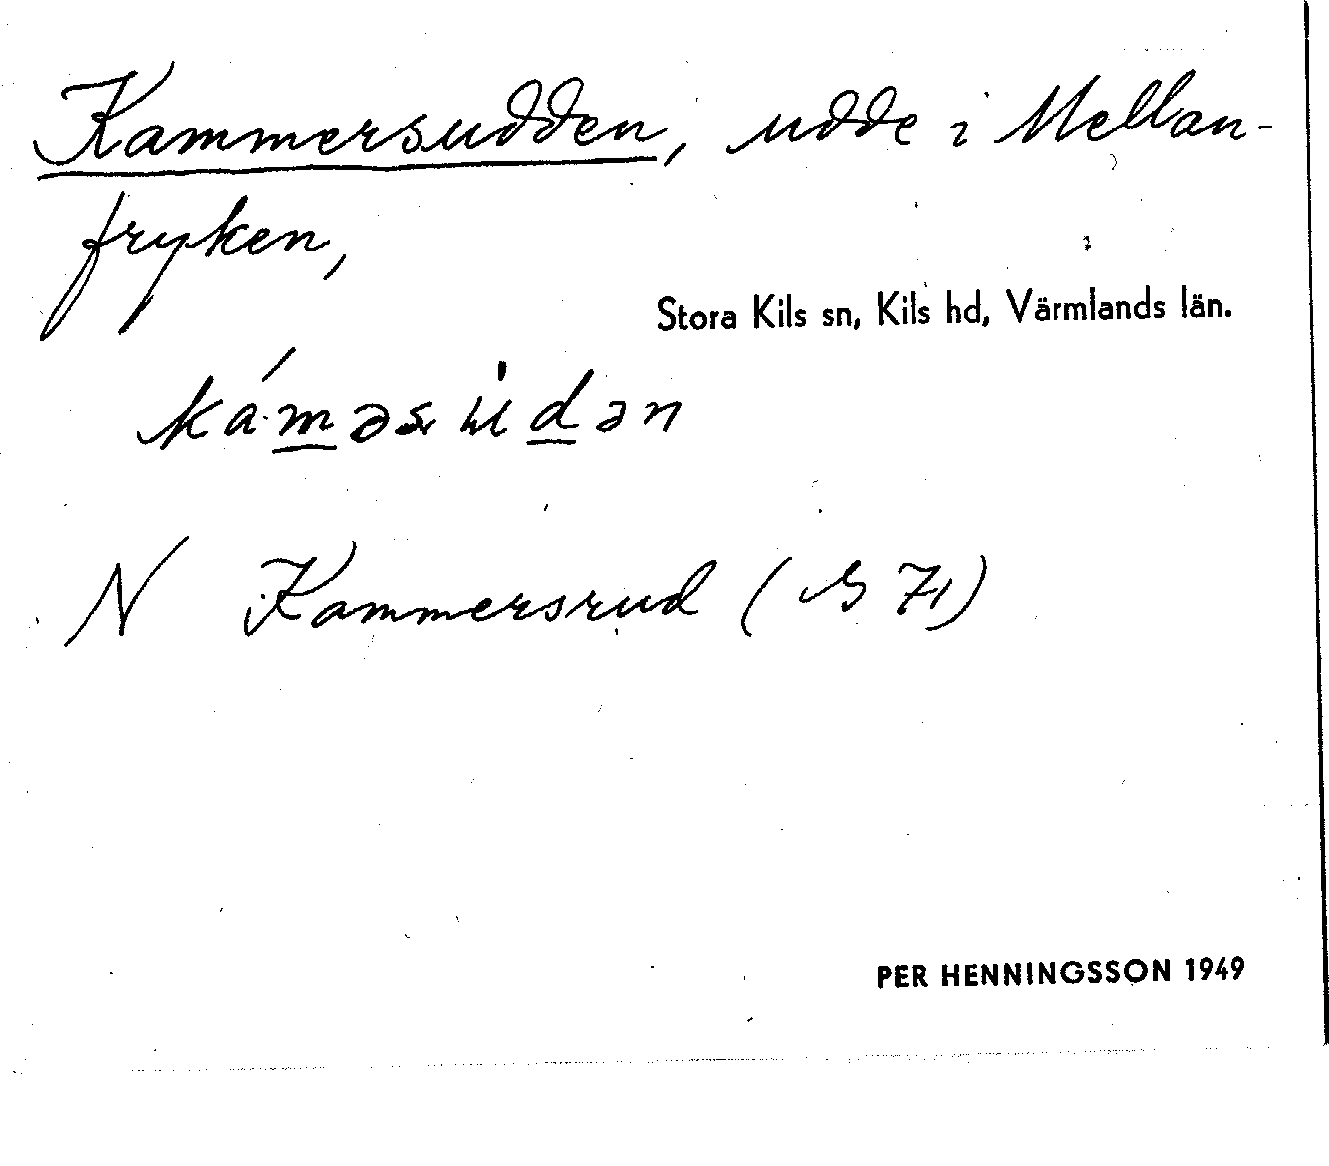 Kammersudden, udde i Mellan-
fryken,
Stora Kils sn, Kils hd, Värmlands län.
ká·m̲əsu̇d̲ən
N Kammersrud (G 71)
PER HENNINGSSON 1949